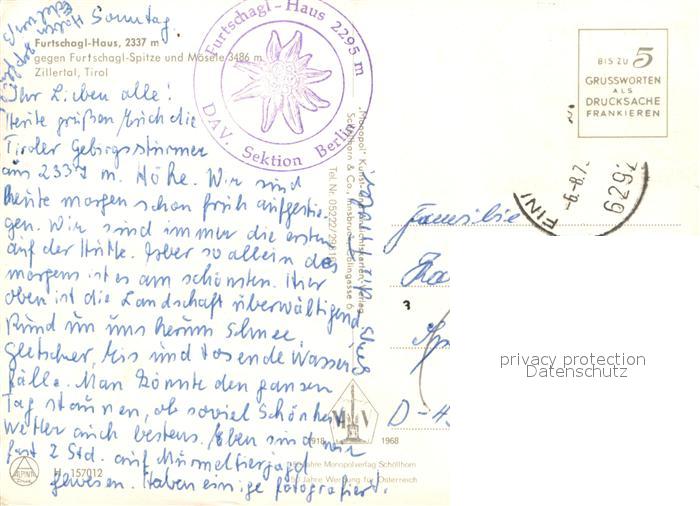 Sonntag
Furtschagl-Haus, 2337 m
gegen Furtschagl-Spitze und Mösele 3486 m
Zillertal, Tirol
Ihr Lieben alle!
Heute grüßen Euch die
Tiroler Gebirgsstürmer
aus 2337 m. Höhe. Wir sind
heute morgen schon früh aufgestie-
gen. Wir sind immer die ersten
auf der Hütte. Aber so allein des
morgens ist es am schönsten. Hier
oben ist die Landschaft überwältigend
Rund um uns herum Schnee,
Gletscher, Eis und tosende Wasser
fälle. Man könnte den ganzen
Tag staunen, ob soviel Schönheit
Wetter auch bestens. Eben sind wir
fast 2 Std. auf Murmeltierjagd
gewesen. Haben einige fotografiert.
H 157012
ALPINA
Furtschagl-Haus 2295 m
DAV. Sektion Berlin
"Monopol" Kunst- Verlag
Schöllhorn & Co., Innsbruck
Tel. Nr. 05222/29
M V
1918 1968
50 Jahre Monopolverlag Schöllhorn
50 Jahre Werbung für Österreich
BIS ZU 5
GRUSSWORTEN
ALS
DRUCKSACHE
FRANKIEREN
-6.-8.7
6292
FIN
Familie
D-4
privacy protection
Datenschutz